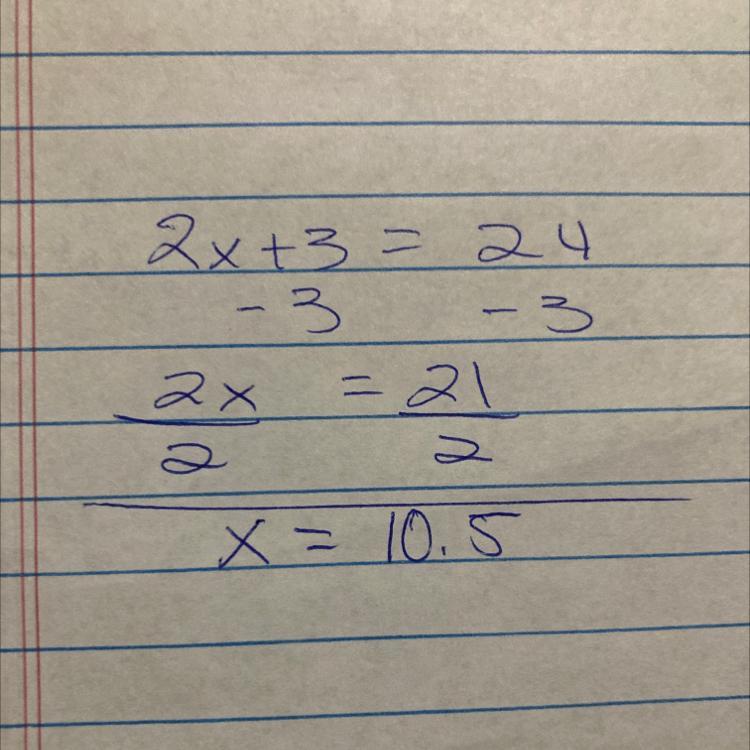 2x+3 = 24
-3 -3
2x = 21
2 2
x = 10.5